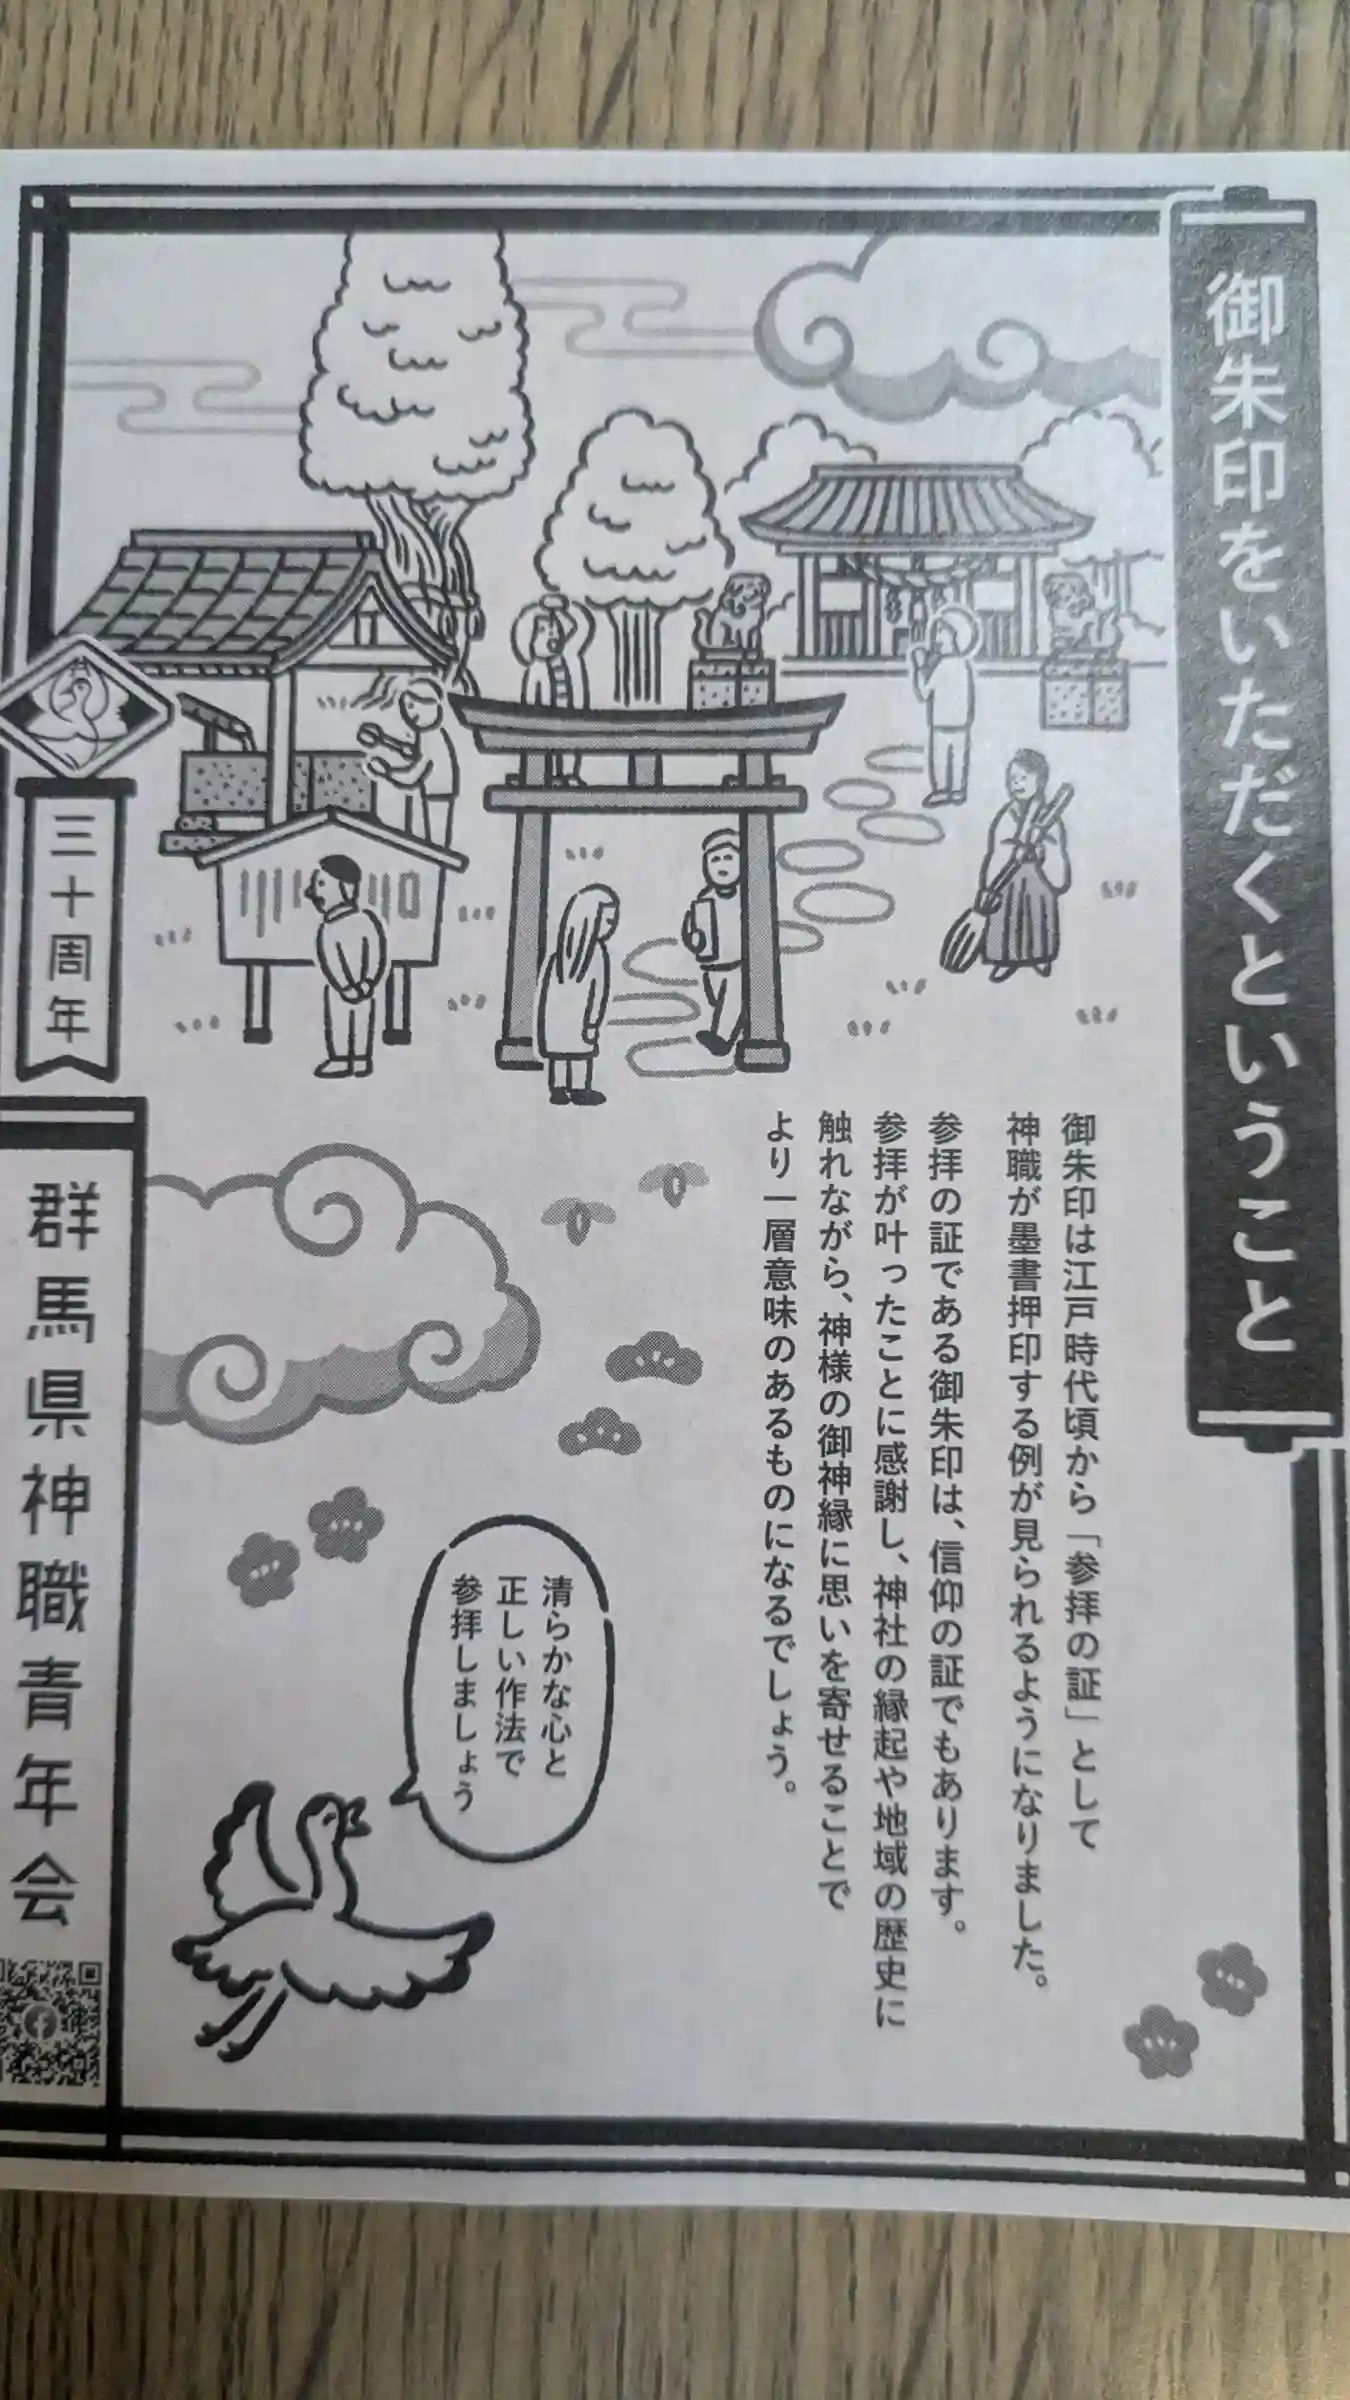 御朱印をいただくということ
御朱印は江戸時代頃から「参拝の証」として
神職が墨書押印する例が見られるようになりました。
参拝の証である御朱印は、信仰の証でもあります。
参拝が叶ったことに感謝し、神社の縁起や地域の歴史に
触れながら、神様の御神縁に思いを寄せることで
より一層意味のあるものになるでしょう。
清らかな心と
正しい作法で
参拝しましょう
三十周年
群馬県神職青年会